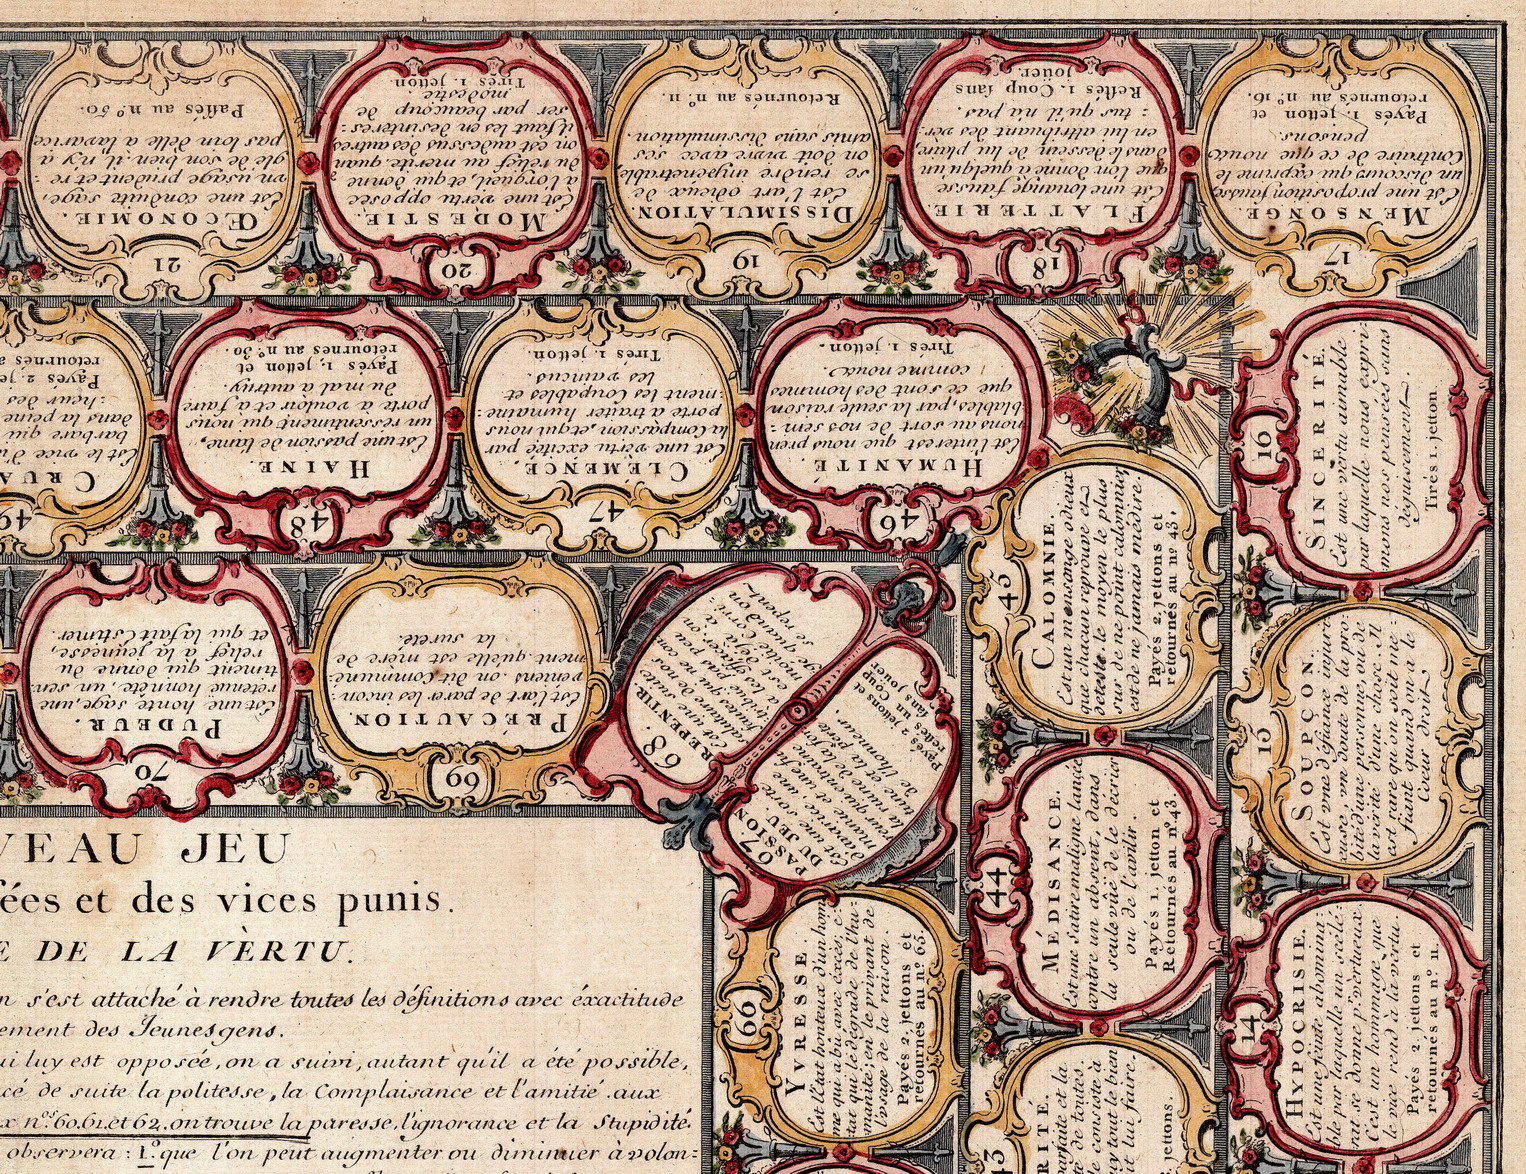 14
HYPOCRISIE.
Est une feinte abomina:
ble par laquelle un scélé:
rat se donne pr vertueux
C'est un hommage que
le vice rend à la vertu.
Payés 2. jettons et
retournés au n.º 11.
15
SOUPÇON.
Est une défiance injuri
euse, un doute de la pro
bité d'une personne, ou de
la verité d'une chose. Il
est rare qu'on soit me
fiant quand on a le
Coeur droit
16
SINCERITÉ.
Est une vertu aimable
par laquelle nous expri:
mons nos pensées sans
déguisement
Tirés 1. jetton.
17
MENSONGE.
Est une proposition fausse
un discours qui exprime le
Contraire de ce que nous
pensons.
Payés 1. jetton et
retournés au n.º 16.
18
FLATTERIE
Est une louange fausse
que l'on donne a quelqu'un
dans le dessein de lui plaire,
en lui attribuant des ver:
: tus qu'il n'a pas.
Restés 1. Coup sans
jouer.
19
DISSIMULATION.
Est l'art odieux de
se rendre impenetrable
on doit vivre avec ses
amis sans dissimulation.
Retournés au n.º 11.
20
MODESTIE.
Est une vertu opposée
à l'orgueil, et qui donne
du relief au merite, quan
on est au dessus des autres
il faut les en desinteres:
ser par beaucoup de
modestie.
Tirés 1. jetton.
21
ŒCONOMIE.
Est une conduite sage,
un usage prudent et re:
glé de son bien. il n'y a
pas loin d'elle a lavarice
Passés au n.º 50.
43
RITÉ.
44
MÉDISANCE.
Est une Satire maligne lancé
contre un absent, dans
la seule vüe de le décrier
ou de l'avilir.
Payés 1. jetton et
Retournés au n.º 43
45
CALOMNIE.
Est un mensonge odieux
que chacun reprouve et
deteste. le moyen le plus
sur de ne point calomnier,
est de ne jamais médire.
Payés 2. jettons et
retournés au n.º 43.
46
HUMANITÉ
Est l'interest que nous pren
nons au sort de nos sem:
blables, par la seule raison
que ce sont des hommes
comme nous
Tirés 1. jetton.
47
CLÉMENCE,
Est une vertu excitée par
la Compassion, et qui nous
porte à traiter humaine:
ment les Coupables et
les vaincus.
Tirés 1. jetton.
48
HAINE.
Est une passion de l'ame,
un ressentiment qui nous
porte à vouloir et a faire
du mal à autruy.
Payés 1. jetton et
retournés au n.º 30.
49
CRUA
Est le vice d'u
barbare qui
dans la peine
: heur des
Payés 2. je
retournés a
66
YVRESSE.
Est l'Etat honteux d'un hom
me qui a bu avec excès, é:
tat qui le dégrade de l'hu:
manité; en le privant de
l'usage de la raison.
Payés 2. jettons et
retournés au n.º 65.
67
PASSION
DU JEU
68
REPENTIR
69
PRECAUTION
Est l'art de parer les incon:
veniens on dit Communé:
ment qu'elle est mére de
la sureté.
70
PUDEUR.
Est une sage, une
retenue honnête, un sen:
timent qui donne du
relief a la jeunesse,
et qui la fait Estimer.
VEAU JEU
sées et des vices punis.
E DE LA VÈRTU.
n s'est attaché à rendre toutes les définitions avec éxactitude
ement des Jeunes gens.
ui luy est opposée, on a suivi, autant qu'il a été possible,
cé de suite la politesse, la Complaisance et l'amitié. aux
x n.os 60.61. et 62. on trouve la paresse, l'ignorance et la Stupidité.
observera : 1.º que l'on peut augmenter ou diminuer à volon: